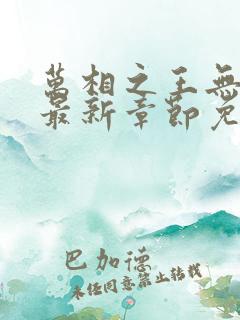 萬相之王無
最新章節免
巴加德
未经同意禁止转载